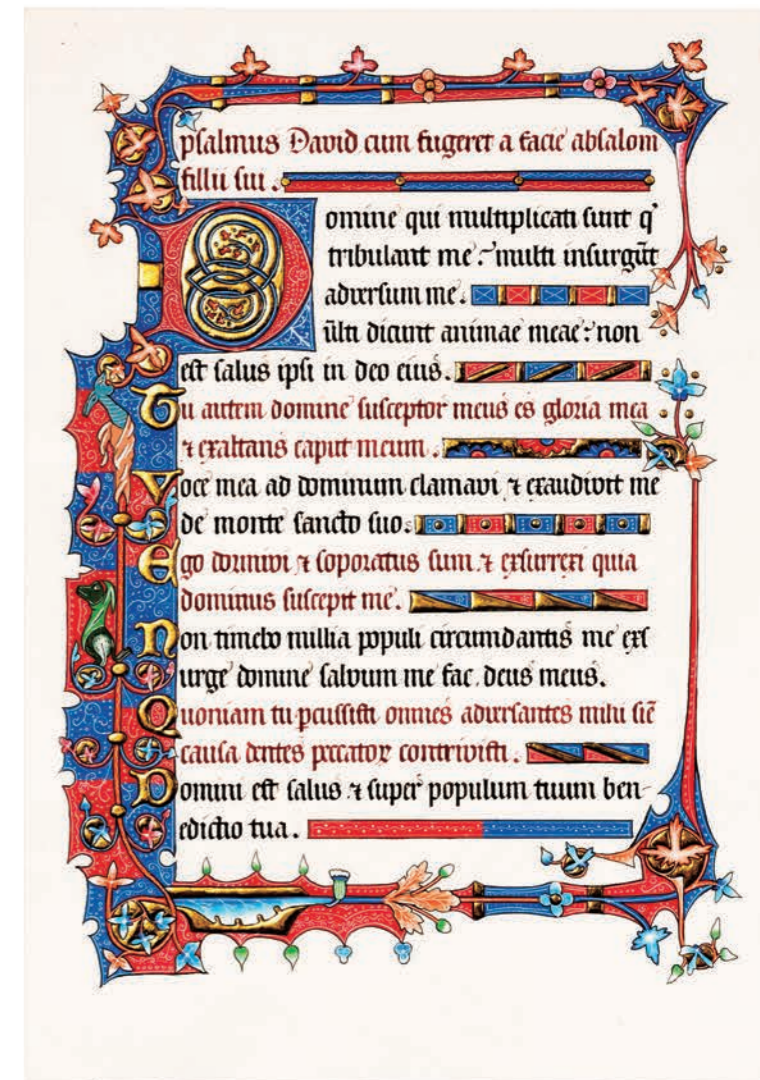 psalmus David cum fugeret a facie absalom
filii sui.
Domine qui multiplicati sunt q᾽
tribulant me : multi insurgūt
adversum me.
ūlti dicunt animae meae : non
est salus ipsi in deo eius.
Tu autem domine susceptor meus es gloria mea
⁊ exaltans caput meum.
Voce mea ad dominum clamavi ⁊ exaudivit me
de monte sancto suo.
Ego dormivi ⁊ soporatus sum ⁊ exsurrexi quia
dominus suscepit me.
Non timebo millia populi circumdantis me exs
urge domine salvum me fac deus meus.
Quoniam tu pcussisti omnes adversantes mihi siē
causa dentes peccator contrivisti.
Domini est salus ⁊ super populum tuum ben-
edictio tua.